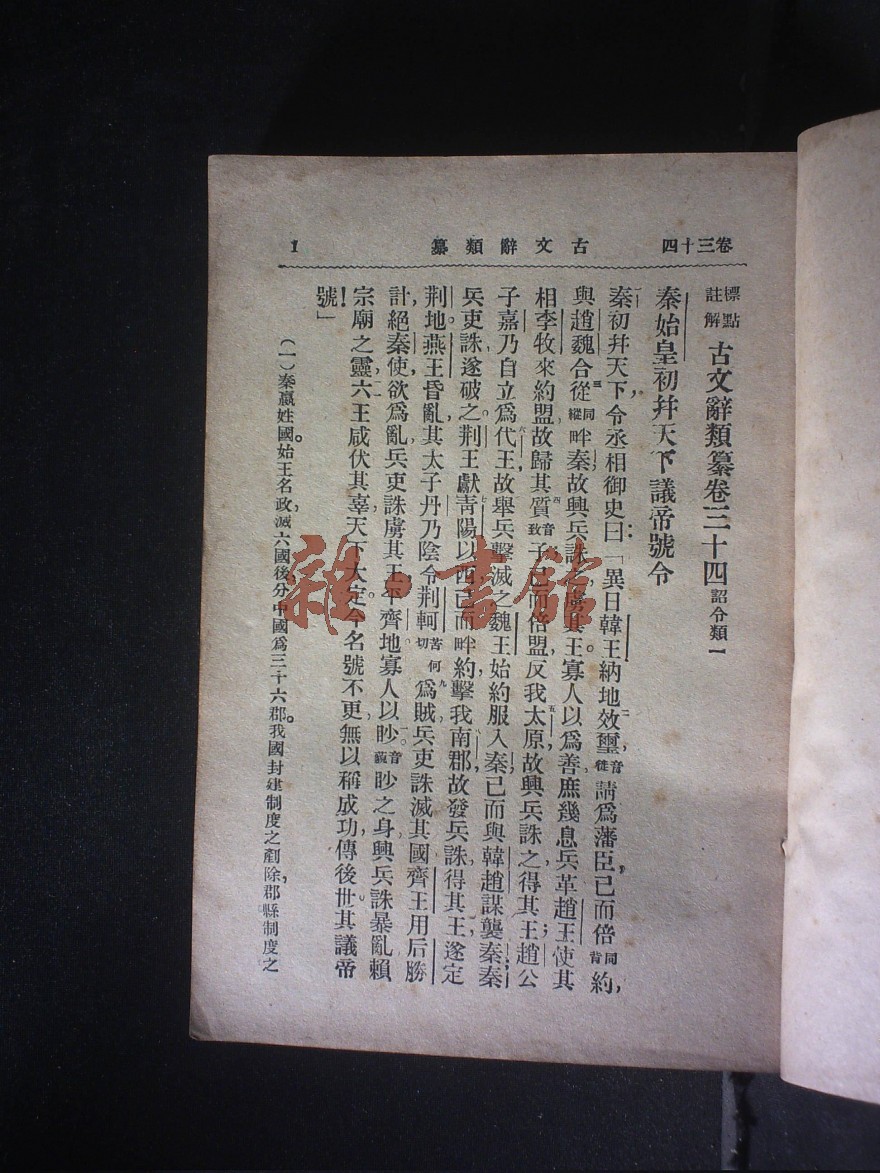 卷三十四 古文辭類纂 1
標點註解 古文辭類纂卷三十四 詔令類一
秦始皇初幷天下議帝號令
秦初幷天下，令丞相御史曰：「異日韓王納地效璽，音徙請爲藩臣，已而倍同背約，
與趙魏合從同縱畔秦，故興兵誅之，虜其王。寡人以爲善，庶幾息兵革。趙王使其
相李牧來約盟，故歸其質音致子，已而倍盟，反我太原，故興兵誅之，得其王；趙公
子嘉乃自立爲代王，故舉兵擊滅之。魏王始約服入秦，已而與韓趙謀襲秦，秦
兵吏誅，遂破之。荆王獻靑陽以西，已而畔約，擊我南郡，故發兵誅，得其王，遂定
荆地。燕王昏亂，其太子丹乃陰令荆軻苦何切爲賊，兵吏誅滅其國。齊王用后勝
計，絕秦使，欲爲亂，兵吏誅虜其王，平齊地。寡人以眇音藐眇之身，興兵誅暴亂，賴
宗廟之靈，六王咸伏其辜，天下大定。今名號不更，無以稱成功，傳後世。其議帝
號！」
（一）秦嬴姓國。始王名政，滅六國後分中國爲三十六郡。我國封建制度之剷除，郡縣制度之
雜·書館